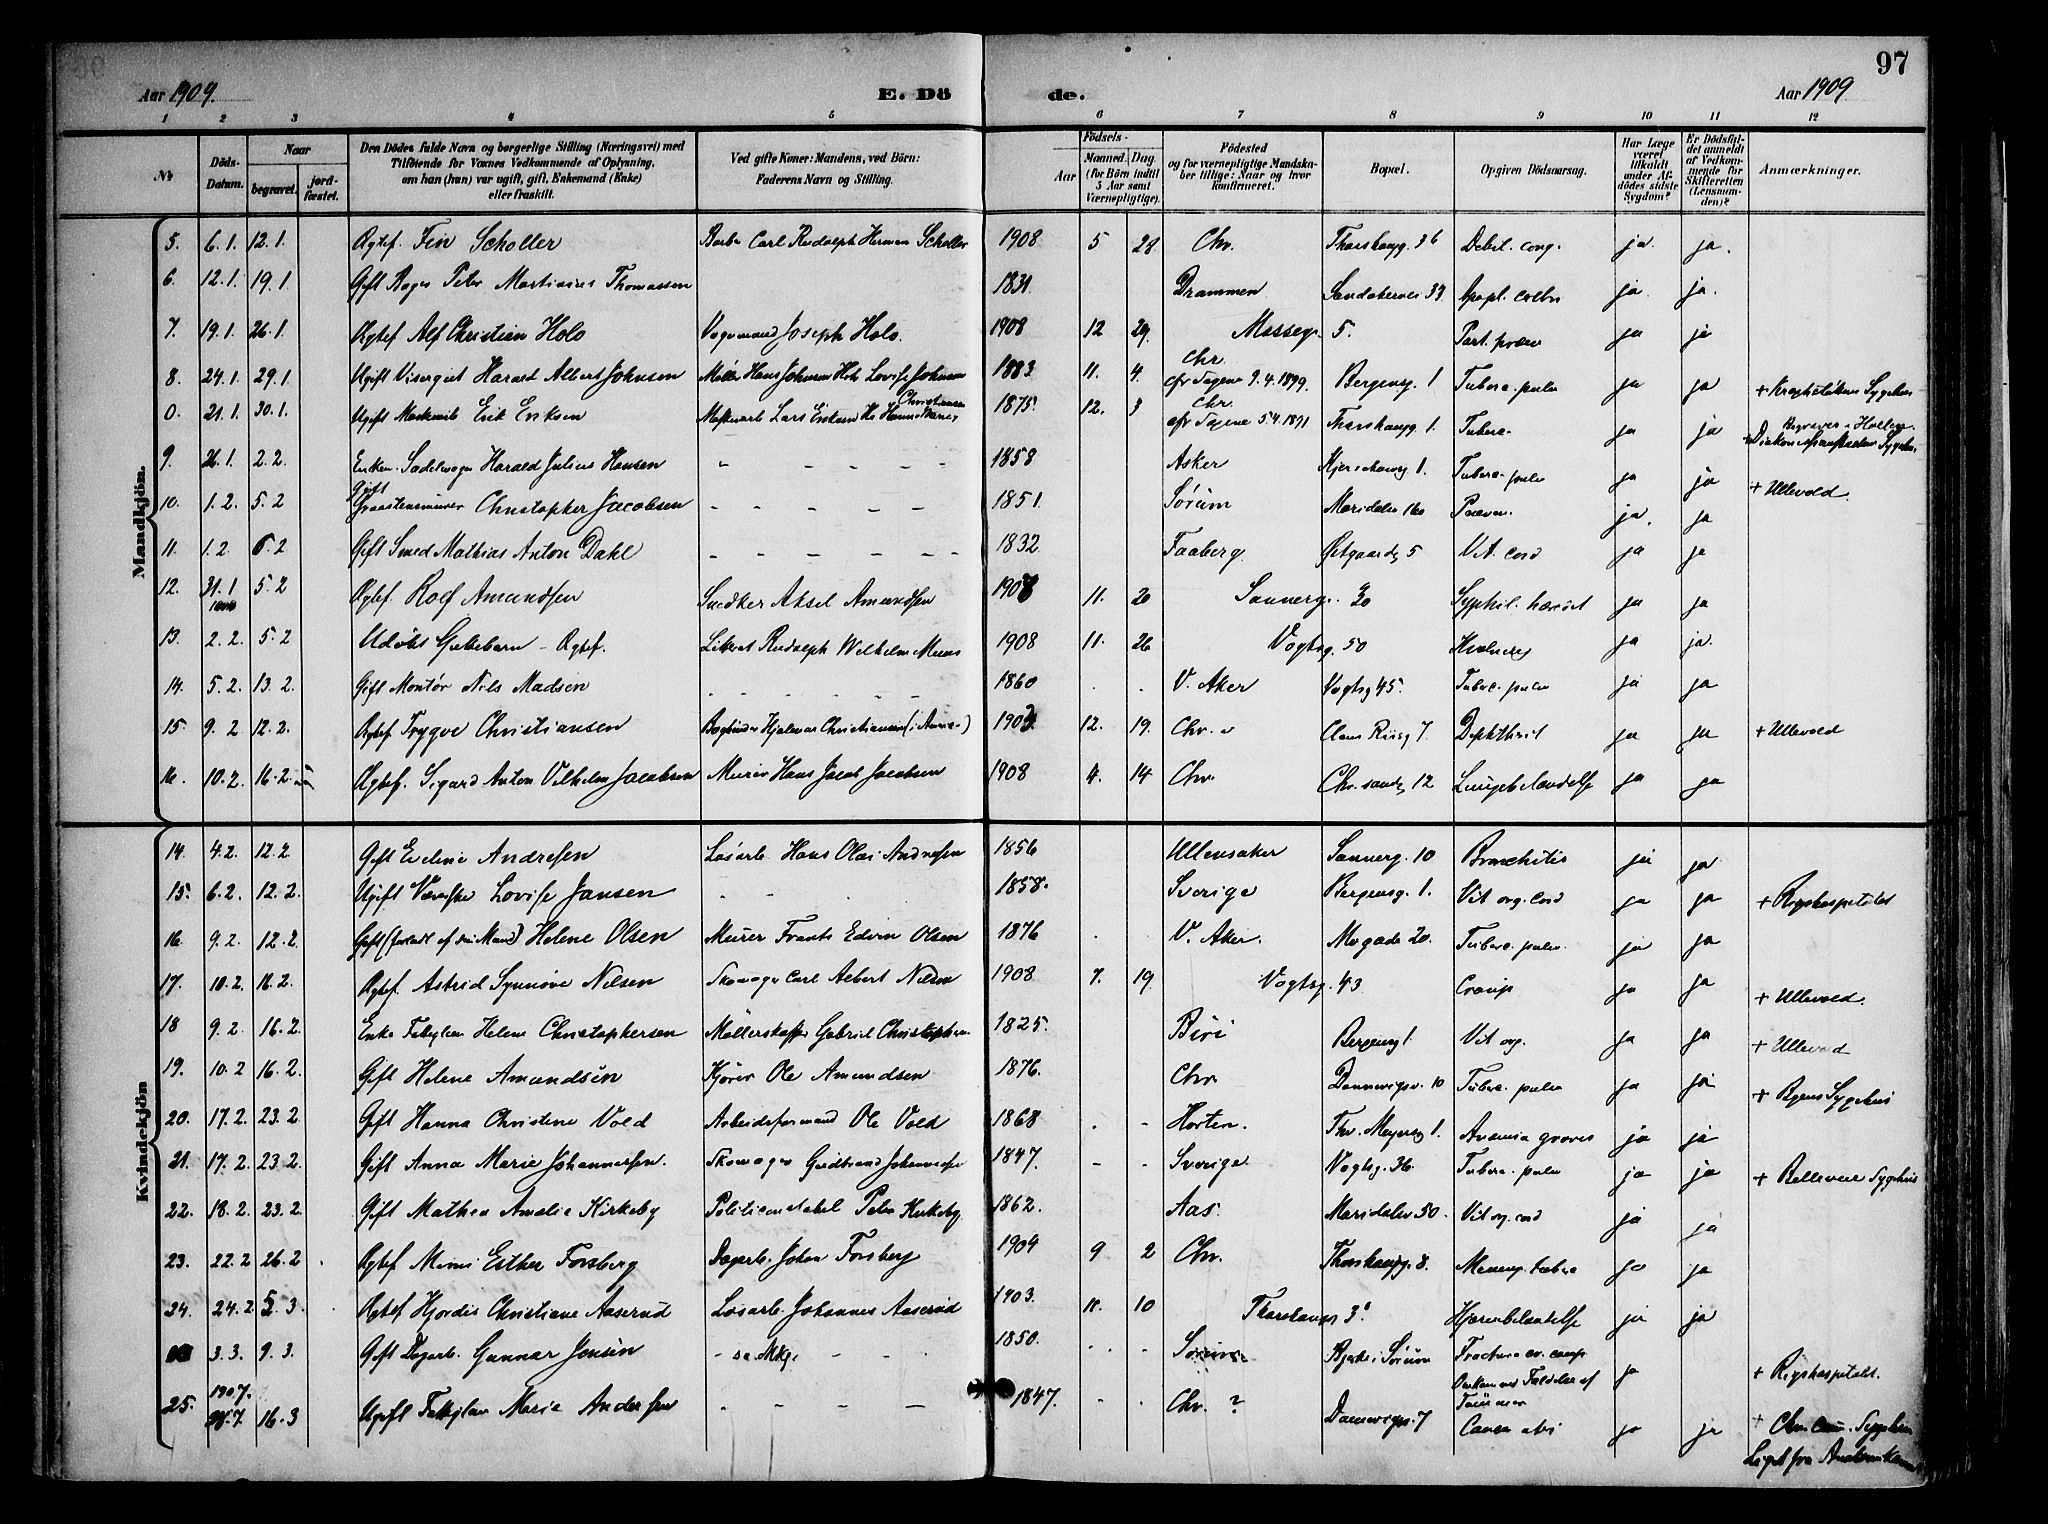 97
Aar 1909. E. Dö de. Aar 1909
1 2 3 4 5 6 7 8 9 10 11 12
No Döds-Datum. Naar begravet. jord-fæstet. Den Dödes fulde Navn og borgerlige Stilling (Næringsvei) med Tilföiende for Voxnes Vedkommende af Oplysning, om han (hun) var ugift, gift, Enkemand (Enke) eller fraskilt. Ved gifte Koner: Mandens, ved Börn: Faderens Navn og Stilling. Födsels- Aar Maaned. Dag. (for Börn indtil 5 Aar samt Værnepligtige). Födested og for værnepligtige Mandskaber tillige: Naar og hvor konfirmeret. Bopæl. Opgiven Dödsaarsag. Har Læge været tilkaldt under Afdödes sidste Sygdom? Er Dödsfaldet anmeldt af Vedkommende for Skifteretten (Lensmanden)? Anmærkninger.
Mandkjön.
5. 6.1. 12.1. Ægtef. Fin Scholler Carl Rudolph Herman Scholler 1908 5 28. Chr. Thorshaugg. 36 Debil. cong. ja ja.
6. 12.1. 19.1 Gift Peter Martinius Thomassen 1831 Drammen 33 Apopl. ja ja.
7. 19.1. 26.1. Ægtef. Alf Christian Holo Vognmand Joseph Holo. 1908 12 29. Mosseg. 5. Part. præm ja ja
8. 24.1. 29.1 Ugift Visergut Harald Albert Johnsen Møller Hans Johnsen Lovise Johnsen 1883. 11. 4. Chr. 9.4.1899. Bergensg. 1 Tuberc. pulm ja ja + Krogstøtten Sygehus
0. 21.1. 30.1. Ugift Erik Eriksen Lars Eriksen Hanne Marie Christiansen 1875. 12. 3 Chr. 5.4.1891 Thorshaugg. 1. Tuberc. ja ja
9. 26.1. 2.2. Enkem. Sadelmager Harald Julius Hansen - - - - - 1858 Asker 1. Tuberc. pulm ja ja Sygehus
10. 1.2. 5.2 Gift Graastensmurer Christopher Jacobsen - - - - - 1851. Sørum Maridalsv 160 ja. ja + Ullevold.
11. 1.2. 6.2 Gift Smed Mathias Anton Dahl - - - - - 1832 Faaberg. Østgaardsg 5 Vit. cord ja ja
12. 31.1 5.2 Ægtef. Rolf Amundsen Snedker Aksel Amundsen 11. 20 Sannerg. 20 Syphil. ja ja
13. 2.2. 5.2 Udøbt Guttebarn - Ægtef. Rudolph Wilhelm 1908 11. 26 Vogtsg. 50 ja ja.
14. 5.2. 13.2. Gift Montør Nils Madsen 1860 V. Aker Vogtsg 45. Tuberc. pulm ja ja
15. 9.2 12.2. Ægtef. Trygve Christiansen Bogbinder Hjalmar Christiansen 12. 19. Chr. Claus Riisg 7. Diphtherit ja ja + Ullevold
16. 10.2. 16.2. Ægtef. Sigurd Anton Vilhelm Jacobsen Murer Hans Jacob Jacobsen 1908 4. 14 Chr. Chr. sandsg 12 Lungebetændelse ja ja
Kvindekjön
14. 4.2. 12.2 Gift Eveline Andresen Løsarb. Hans Olai Andresen 1856 Ullensaker Sannerg. 10 Bronchitis ja ja
15. 6.2. 12.2. Ugift Væverske Lovise Jansen - - 1858. Sverige Bergensg. 1. Vit org. cord ja ja + Rigshospitalet
16. 9.2. 12.2 Gift (forladt af sin Mand) Helene Olsen Murer Frants Edvin Olsen 1876 V. Aker. Mogade 20. Tuberc. pulm. ja ja
17. 10.2. 16.2. Ægtef. Astrid Synnøve Nilsen Skomager Carl Albert Nilsen 1908 7. 19. Vogtsg. 43 Croup ja ja + Ullevold.
18 9.2. 16.2. Enke Helene Christophersen Gabriel Christophersen 1825. Biri Bergensg 1. Vit org. ja ja + Ullevold
19. 10.2 16.2. Gift Helene Amundsen Kjører Ole Amundsen 1876. Chr. Dannevigsv. 10 Tuberc. pulm ja ja + Byens Sygehus
20. 17.2. 23.2 Gift Hanna Christine Vold Arbeidsformand Ole Vold 1868 Horten. Thv. Meyersg 1. Anæmia graves ja ja
21. 17.2. 23.2. Gift Anna Marie Johannessen. Skomager Gudbrand Johannessen 1847. Sverige. Vogtsg. 36. Tuberc. pulm ja ja + Bellevue Sygehus
22. 18.2. 23.2 Gift Mathea Amalie Kirkeby Politikonstabel Peter Kirkeby. 1862. Aas. Maridalsv 50. Vit og. cord ja ja
23. 22.2 26.2 Ægtef. Esther Forsberg Dagarb. Johan Forsberg 1904 9 2 Chr. Thorshaugg. 8. Mening. tuberc ja ja
24. 24.2 5.3. Ægtef Hjordis Christiane Aaserud Løsarb. Johannes Aaserud 1903. 11. 10 Thorshaugg 3 Hjernebetændelse ja ja
3.3. 9.3. Gift Dagarb. Gunnar Jensen - se Mkj. - - 1850. Sørum Bjerke i Sørum Fractura ja + Rigshospitalet.
25. 1907. 16.3 Ugift Marie Andersen - - - - 1847. Chr. ? Dannevigsv. 7 Tømmer Cancer ja ja + Chr. Sygehus
Liget fra